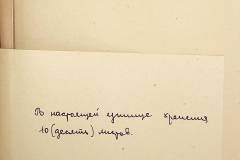 В настоящей единице хранения
10 (десять) листов.